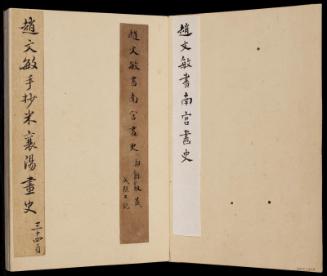 趙文敏書南宮畫史
趙文敏書南宮畫史
趙文敏手抄米襄陽畫史
三十四頁